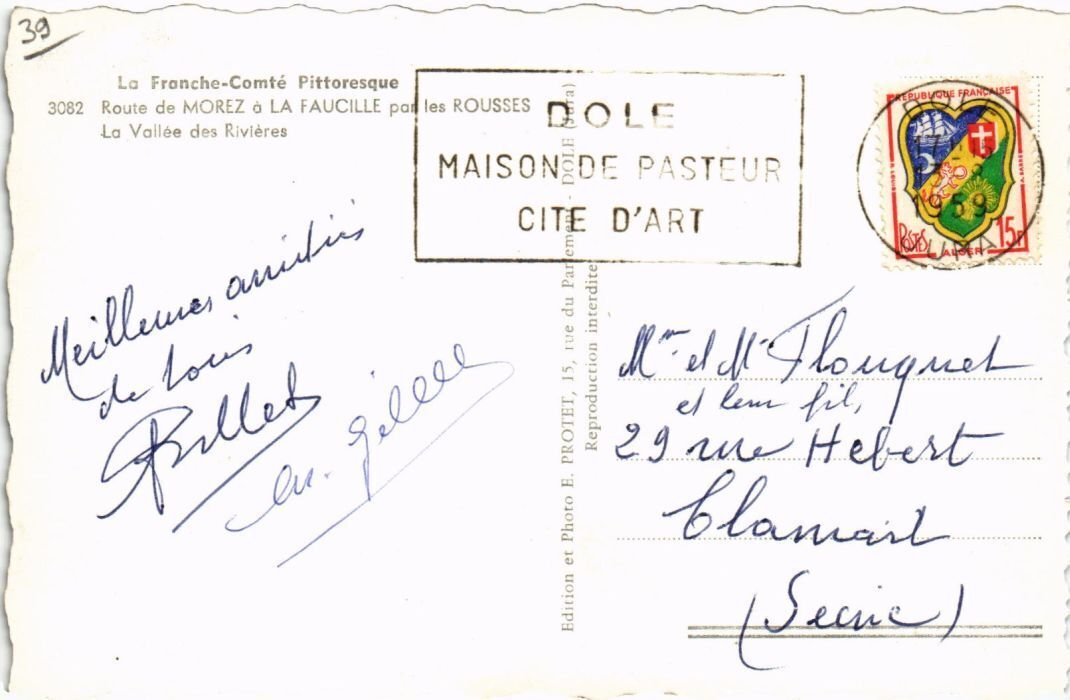 39
La Franche-Comté Pittoresque
3082 Route de MOREZ à LA FAUCILLE par les ROUSSES
La Vallée des Rivières
DOLE
MAISON DE PASTEUR
CITE D'ART
REPUBLIQUE FRANÇAISE
1959
JURA
POSTES
15F
ALGER
Meilleures amitiés
de tous
Mme et Mr Flouquet
et leur fils,
29 rue Hebert
Clamart
(Seine)
Edition et Photo E. PROTET, 15, rue du Parlement - DOLE (Jura)
Reproduction interdite